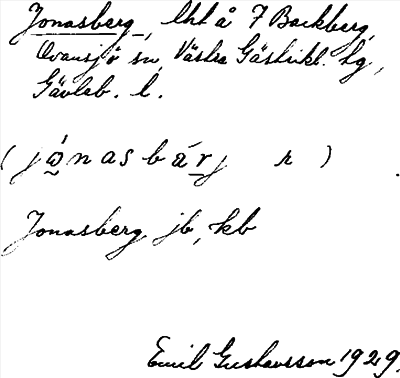 Jonasberg, lht å 7 Backberg,
Ovansjö sn, Västra Gästrikl. hg,
Gävleb. l.
(jónasbárj r)
Jonasberg jb, kb
Emil Gustavsson 1929.